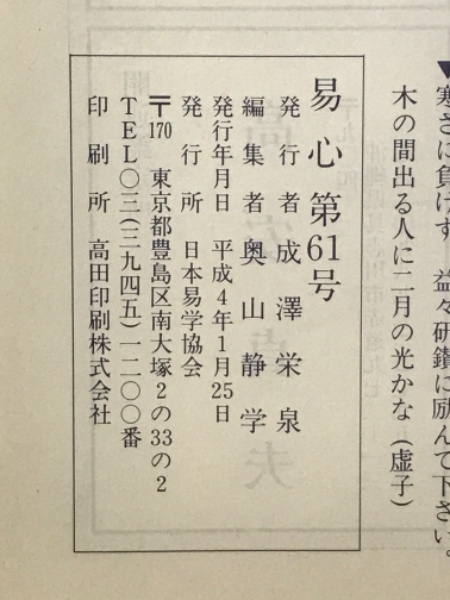 ▼寒さに負けず 益々研鑽に励んで下さい。
木の間出る人に二月の光かな(虚子)
易心 第61号
発行者 成澤栄泉
編集者 奥山静学
発行年月日 平成4年1月25日
発行所 日本易学協会
〒170 東京都豊島区南大塚2の33の2
TEL〇三(三九四五)一二〇〇番
印刷所 高田印刷株式会社